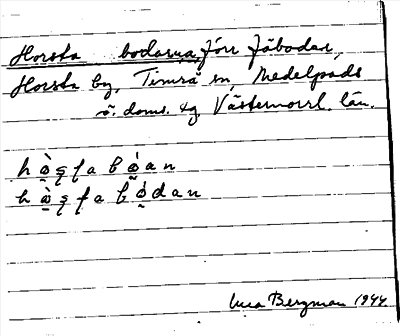 Horsta bodarna, förr fäbodar,
Horsta by, Timrå sn, Medelpads
ö. doms. tg Västernorrl. län.
h ò̤ ş ʈ a b ö́ a n
h ò̤ ş ʈ a b ö́ d a n
Bergman 1944.